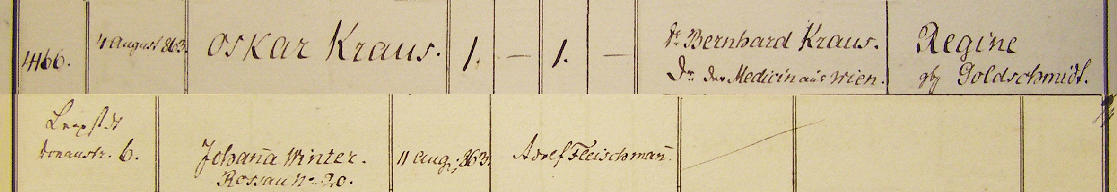 4166.
4 August 863.
Oskar Kraus.
1. — 1. —
Dr Bernhard Kraus.
Dr. der Medicin aus Wien.
Regine
geb Goldschmidt.
Leopstdt
Donaustr. 6.
Johana Winter.
Rossau No 20.
11 Aug; 863.
Adolf Fleischman̄.